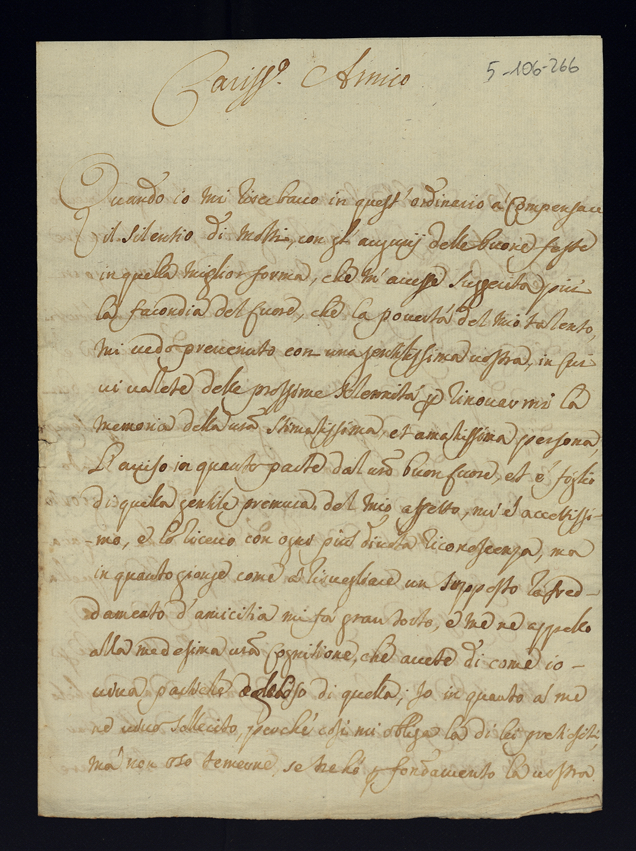 5-106-266
Cariss.o Amico
Quando io mi riserbavo in quest'ordinario a' Compensare
il silentio di molti, con gl'augurij delle buone feste
in quella miglior forma, che m'avesse suggerita più
la facondia del Cuore, che la povertà del mio talento,
mi vedo prevenuto con una gentilissima vostra, in cui
vi valete delle prossime solennità p rinovarmi la
memoria della vrã stimatissima, et amatissima persona,
L'aviso in quanto parte dal vrõ buon Cuore, et è foglio
di quella gentile premura del mio affetto, mi è accettissi-
mo, e lo ricevo con ogni più divota riconoscenza, ma
in quanto giunge come a' risvegliare un supposto raffred-
damento d'amicitia mi fà gran torto, e me ne appello
alla medesima vrã Cognitione, che avete di come io
viva geloso di quella; Io in quanto a' me
ne vivo sollecito, perché così mi obliga la di lei pretiosità,
mà non oso temerne, se ne hò p fondamento la vostra